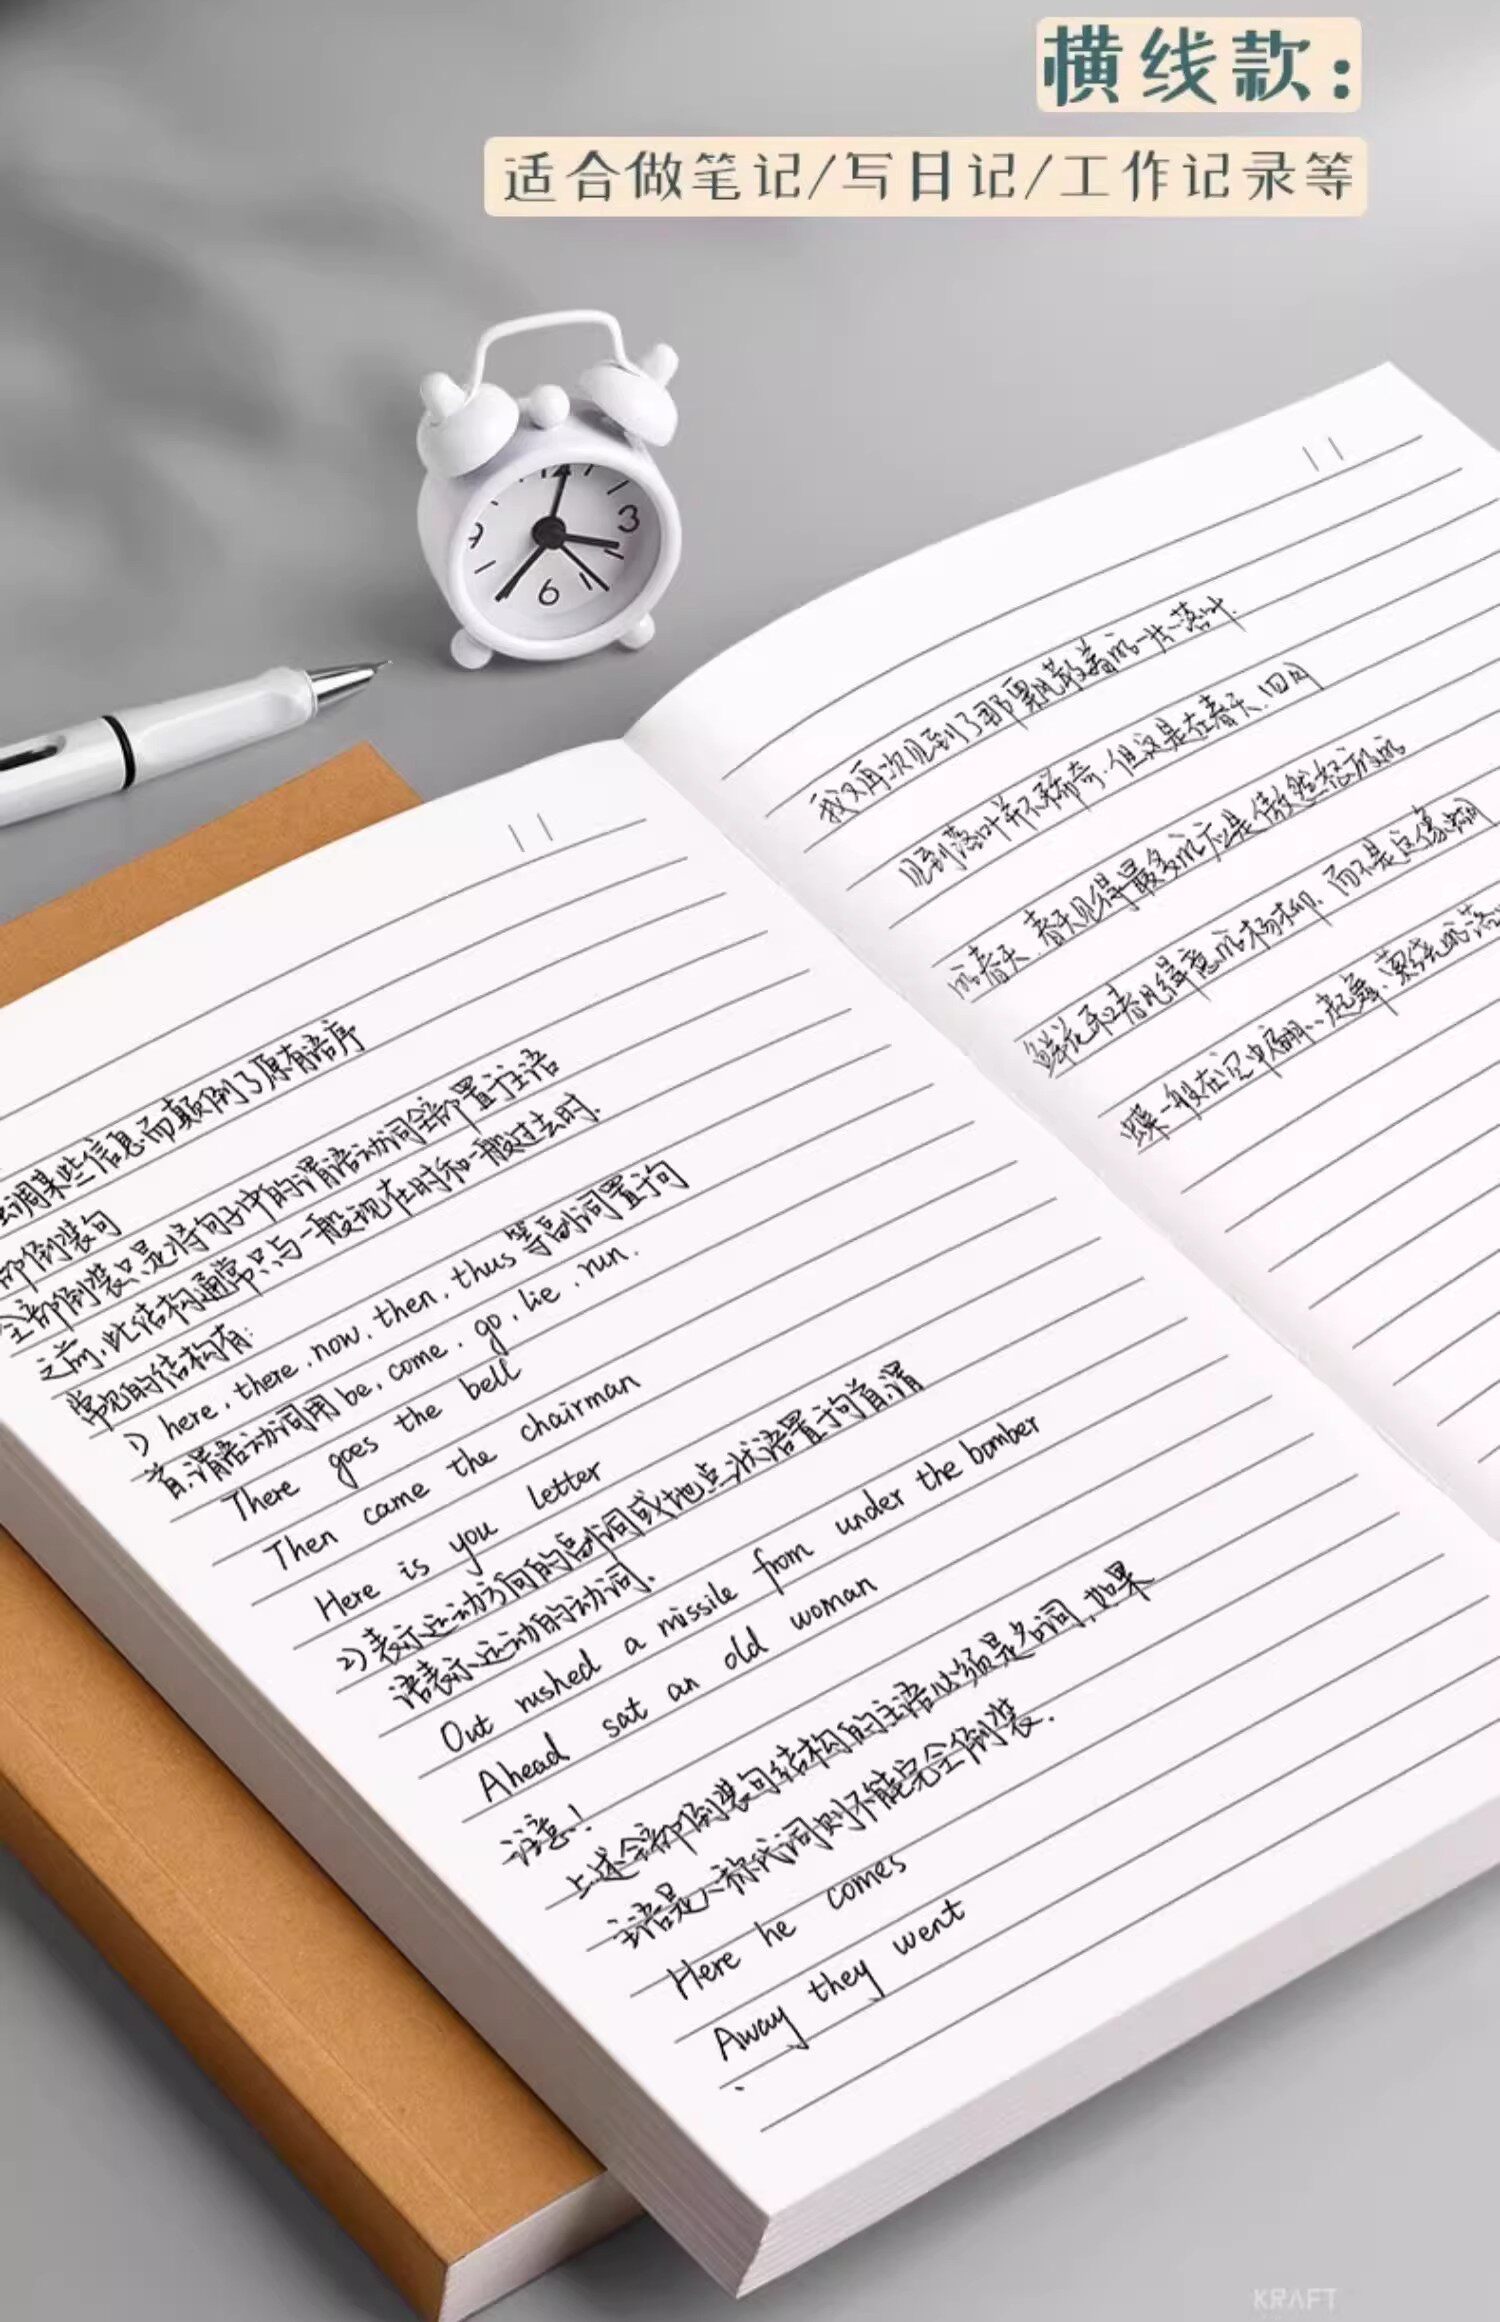 横线款：
适合做笔记/写日记/工作记录等
12
3
6
9
强调某些信息而颠倒了原有语序
部倒装句
全部倒装只是将句子中的谓语动词全部置于主语
之前,此结构通常只与一般现在时和一般过去时.
常见的结构有:
1) here, there, now, then, thus等副词置于句
首,谓语动词用be, come, go, lie, run.
There goes the bell
Then came the chairman
Here is you letter
2)表示运动方向的副词或地点状语置于句首,谓
语表示运动的动词.
Out rushed a missile from under the bomber
Ahead sat an old woman
注意!
上述全部倒装句结构的主语必须是名词,如果
主语是人称代词则不能完全倒装.
Here he comes
Away they went
我又再次见到了那飘散着的一片落叶.
见到落叶并不稀奇.但这是在春天.四月
的春天.春天见得最多的应是傲然怒放的
鲜花和春风得意的杨柳.而不是这像蝴
蝶一般在空中翩
KRAFT